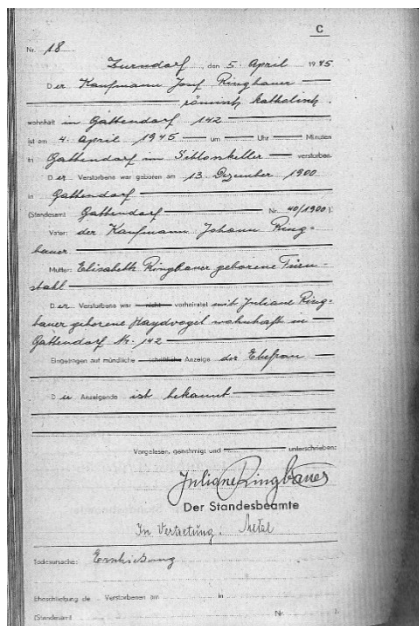 C
Nr. 18
Zurndorf, den 5. April 1945
Der Kaufmann Josef Ringbauer
römisch katholisch,
wohnhaft in Gattendorf 142
ist am 4. April 1945 — um — Uhr — Minuten
in Gattendorf im Schlosskeller verstorben.
Der Verstorbene war geboren am 13. Dezember 1900
in Gattendorf
(Standesamt Gattendorf Nr. 40/1900).
Vater: der Kaufmann Johann Ring-
bauer
Mutter: Elisabeth Ringbauer geborene Türn-
stahl
Der Verstorbene war nicht verheiratet mit Juliane Ring-
bauer geborene Haydvogel wohnhaft in
Gattendorf Nr. 142
Eingetragen auf mündliche schriftliche Anzeige der Ehefrau
Der Anzeigende ist bekannt
Vorgelesen, genehmigt und unterschrieben:
Juliane Ringbauer
Der Standesbeamte
In Vertretung:
Todesursache: Erschießung
Eheschließung de Verstorbenen am in
(Standesamt Nr.